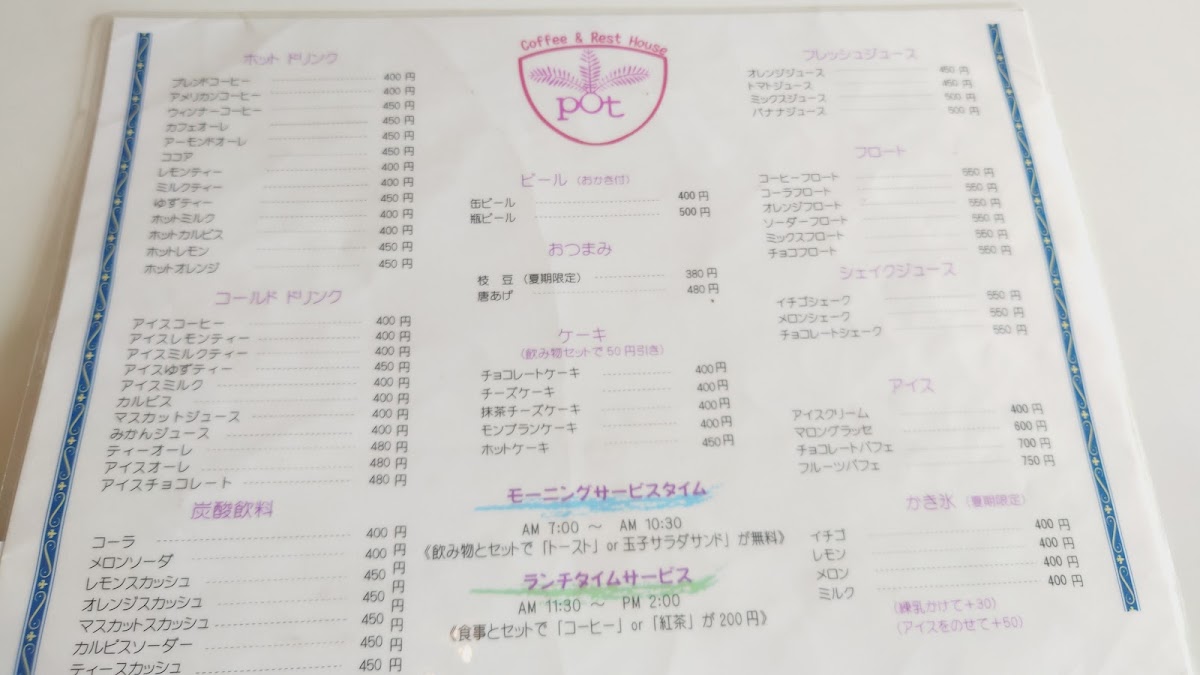 ホット ドリンク
ブレンドコーヒー 400 円
アメリカンコーヒー 400 円
ウィンナーコーヒー 450 円
カフェオーレ 450 円
アーモンドオーレ 450 円
ココア 450 円
レモンティー 400 円
ミルクティー 400 円
ゆずティー 450 円
ホットミルク 400 円
ホットカルピス 400 円
ホットレモン 450 円
ホットオレンジ 450 円
コールド ドリンク
アイスコーヒー 400 円
アイスレモンティー 400 円
アイスミルクティー 400 円
アイスゆずティー 450 円
アイスミルク 400 円
カルピス 400 円
マスカットジュース 400 円
みかんジュース 400 円
ティーオーレ 480 円
アイスオーレ 480 円
アイスチョコレート 480 円
炭酸飲料
コーラ 400 円
メロンソーダ 400 円
レモンスカッシュ 450 円
オレンジスカッシュ 450 円
マスカットスカッシュ 450 円
カルピスソーダー 450 円
ティースカッシュ 450 円
Coffee & Rest House
pot
ビール (おかき付)
缶ビール 400 円
瓶ビール 500 円
おつまみ
枝 豆 (夏期限定) 380 円
唐あげ 480 円
ケーキ
(飲み物セットで 50 円引き)
チョコレートケーキ 400 円
チーズケーキ 400 円
抹茶チーズケーキ 400 円
モンブランケーキ 400 円
ホットケーキ 450 円
モーニングサービスタイム
AM 7:00 ～ AM 10:30
《飲み物とセットで「トースト」or 玉子サラダサンド」が無料》
ランチタイムサービス
AM 11:30 ～ PM 2:00
《食事とセットで「コーヒー」or「紅茶」が 200 円》
フレッシュジュース
オレンジジュース 450 円
トマトジュース 450 円
ミックスジュース 500 円
バナナジュース 500 円
フロート
コーヒーフロート 550 円
コーラフロート 550 円
オレンジフロート 550 円
ソーダーフロート 550 円
ミックスフロート 550 円
チョコフロート 550 円
シェイクジュース
イチゴシェーク 550 円
メロンシェーク 550 円
チョコレートシェーク 550 円
アイス
アイスクリーム 400 円
マロングラッセ 600 円
チョコレートパフェ 700 円
フルーツパフェ 750 円
かき氷 (夏期限定)
イチゴ 400 円
レモン 400 円
メロン 400 円
ミルク 400 円
(練乳かけて＋30)
(アイスをのせて＋50)